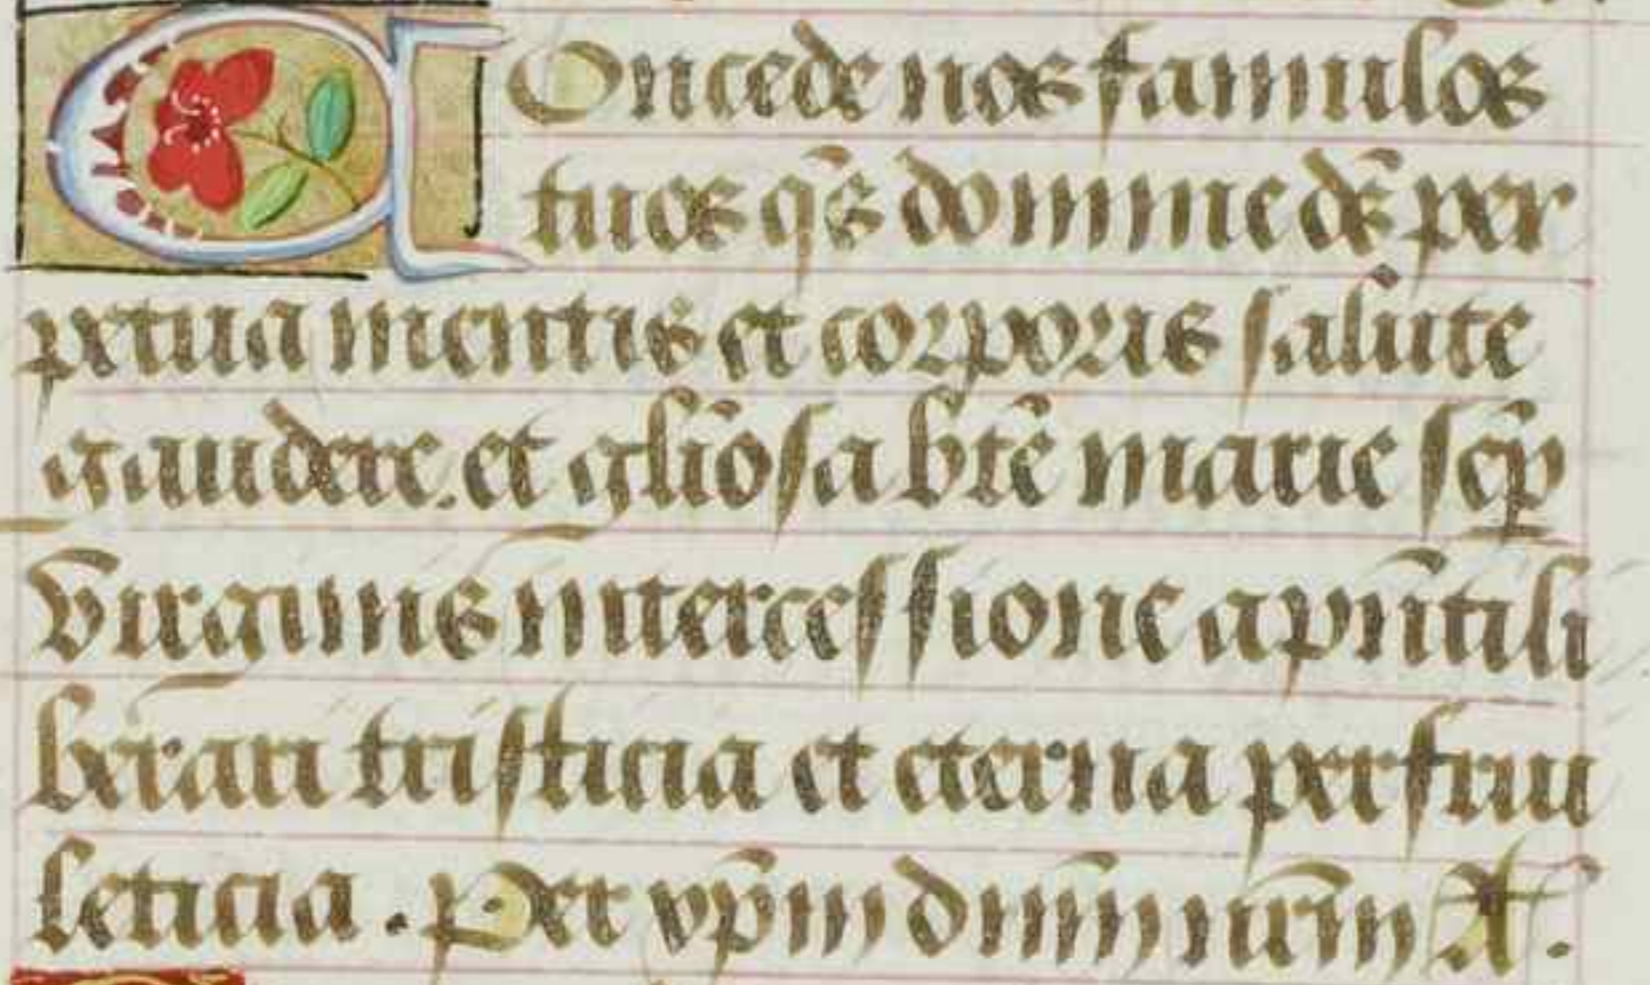 COncede nos famulos
tuos q̄s domine de᷒ per
petua mentis et corporis salute
gaudere. et gl̄iosa bt̄e marie sēp̱
virginis intercessione a pn̄ti li
berari tristicia et eterna perfrui
leticia. Per xp̄m dn̄m nr̄m A.